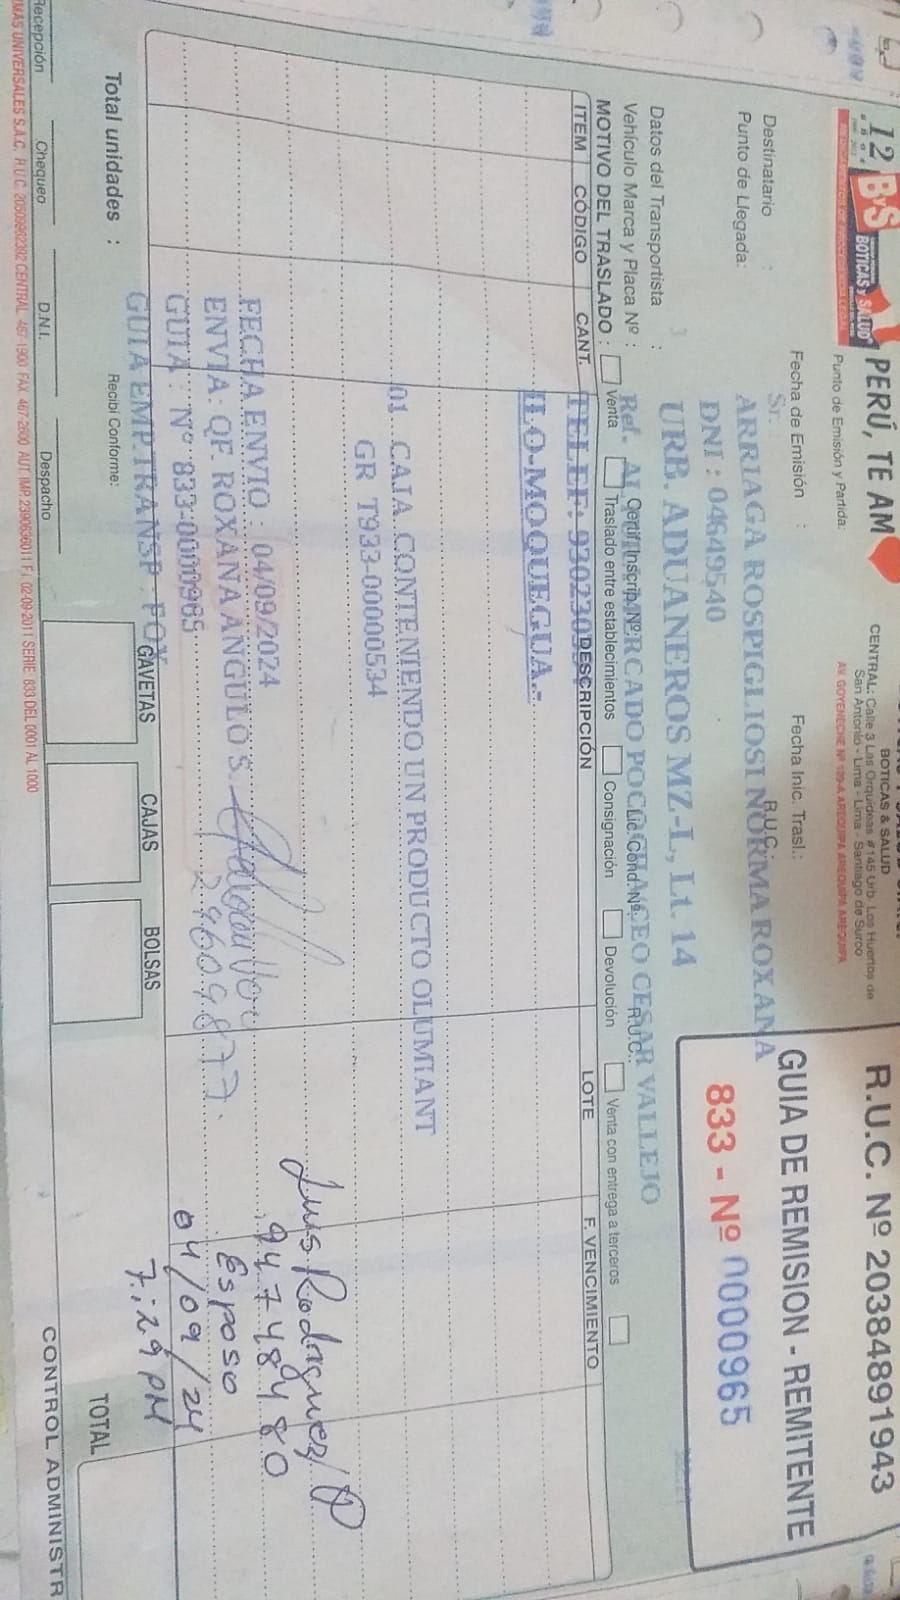 12 ByS BOTICAS y SALUD PERÚ, TE AM
BOTICAS & SALUD
CENTRAL: Calle 3 Las Orquideas #145 Urb. Los Huertos de
San Antonio - Lima - Lima - Santiago de Surco
AV. GOYENECHE Nº 199-A AREQUIPA AREQUIPA AREQUIPA
R.U.C. Nº 20384891943
GUIA DE REMISION - REMITENTE
833 - Nº 0000965
Punto de Emisión y Partida:
Fecha de Emisión :
Fecha Inic. Trasl.:
Destinatario :
Sr.
R.U.C.:
Punto de Llegada:
ARRIAGA ROSPIGLIOSI NORMA ROXANA
DNI : 04649540
URB. ADUANEROS MZ-L, Lt. 14
Datos del Transportista :
Vehículo Marca y Placa Nº :
Certif. Inscrip. Nº:
Lic. Cond. Nº
R.U.C.
Ref. CESAR VALLEJO
MOTIVO DEL TRASLADO :
Venta
Traslado entre establecimientos
Consignación
Devolución
Venta con entrega a terceros
ITEM CÓDIGO CANT. DESCRIPCIÓN LOTE F. VENCIMIENTO
TELEF:
ILO-MOQUEGUA.-
01 CAJA CONTENIENDO UN PRODUCTO OLUMIANT
GR T933-00000534
FECHA ENVIO : 04/09/2024
ENVIA: QF. ROXANA ANGULO S.
GUIA : Nº 833-0000965
GUIA EMP.TRANSP :
29609877.
Luis Rodriguez O
947484480
Esposo
04/09/24
7:29 PM
Total unidades :
Recibí Conforme:
GAVETAS
CAJAS
BOLSAS
TOTAL
Recepción
Chequeo
D.N.I.
Despacho
CONTROL ADMINISTR
IMAS UNIVERSALES S.A.C. R.U.C. 20509962392 CENTRAL 467-1900 FAX 467-2600 AUT. IMP. 2390636011 F.I 02-09-2011 SERIE 833 DEL 0001 AL 1000